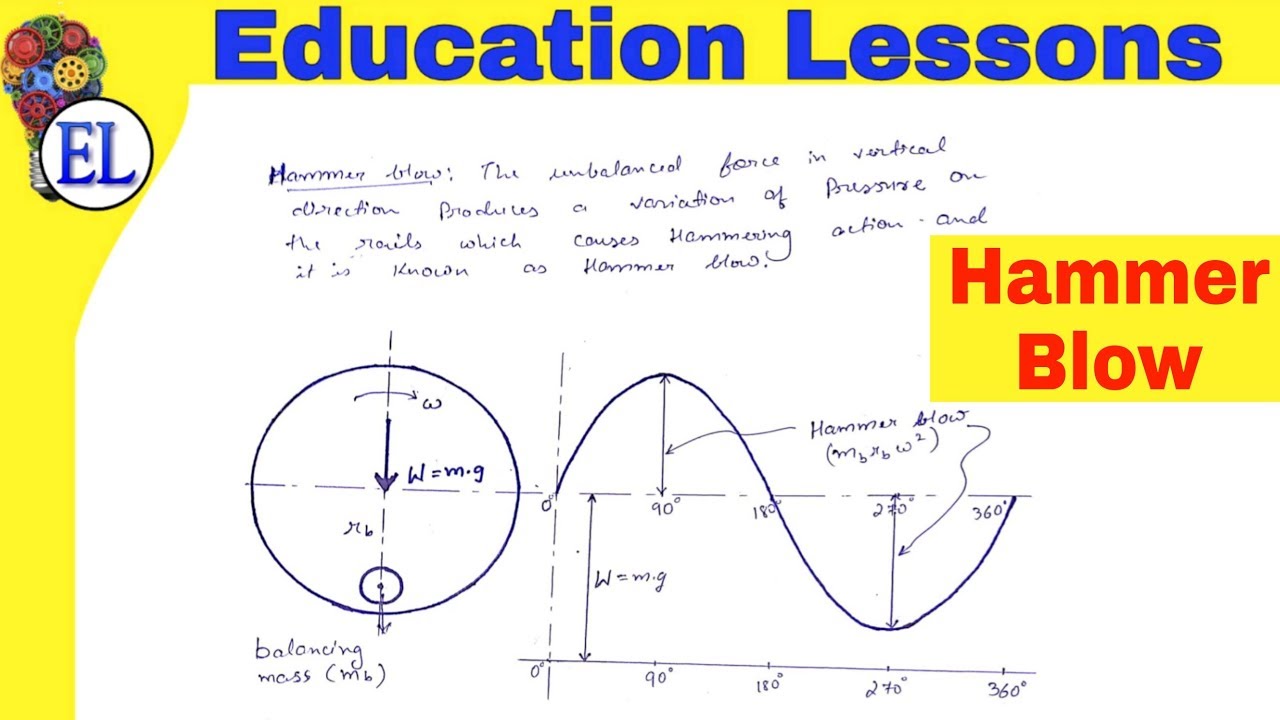 Education Lessons
EL
Hammer blow: The unbalanced force in vertical
direction Produces a variation of Pressure on
the rails which causes Hammering action and
it is Known as Hammer blow.
Hammer
Blow
ω
W = m·g
r_b
balancing
mass (m_b)
Hammer blow
(m_b r_b ω²)
0° 90° 180° 270° 360°
W = m·g
0° 90° 180° 270° 360°